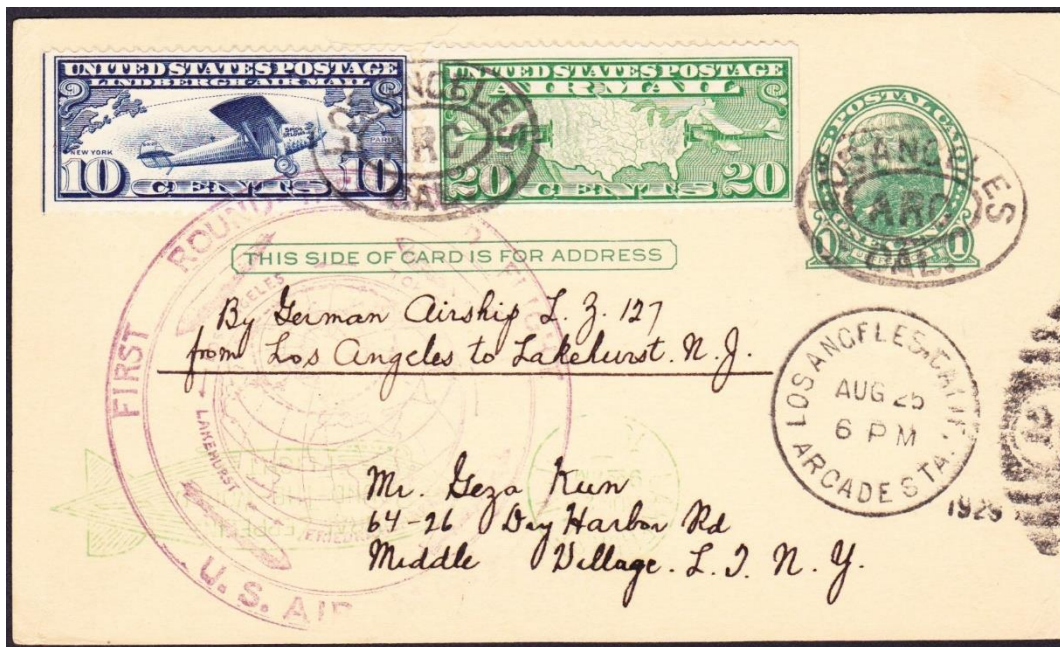 UNITED STATES POSTAGE
LINDBERGH-AIR MAIL
NEW YORK
PARIS
10 CENTS 10
UNITED STATES POSTAGE
AIR MAIL
20 CENTS 20
U.S. POSTAL CARD
1 1
LOS ANGELES
ARC
CAL.
LOS ANGELES
ARC
CAL.
THIS SIDE OF CARD IS FOR ADDRESS
FIRST ROUND
LAKEHURST
U.S. AIR
By German Airship L. Z. 127
from Los Angeles to Lakehurst. N. J.
LOS ANGELES, CALIF.
AUG 25
6 PM
ARCADE STA.
1929
Mr. Geza Kun
64-26 Dry Harbor Rd
Middle Village. L. I. N. Y.